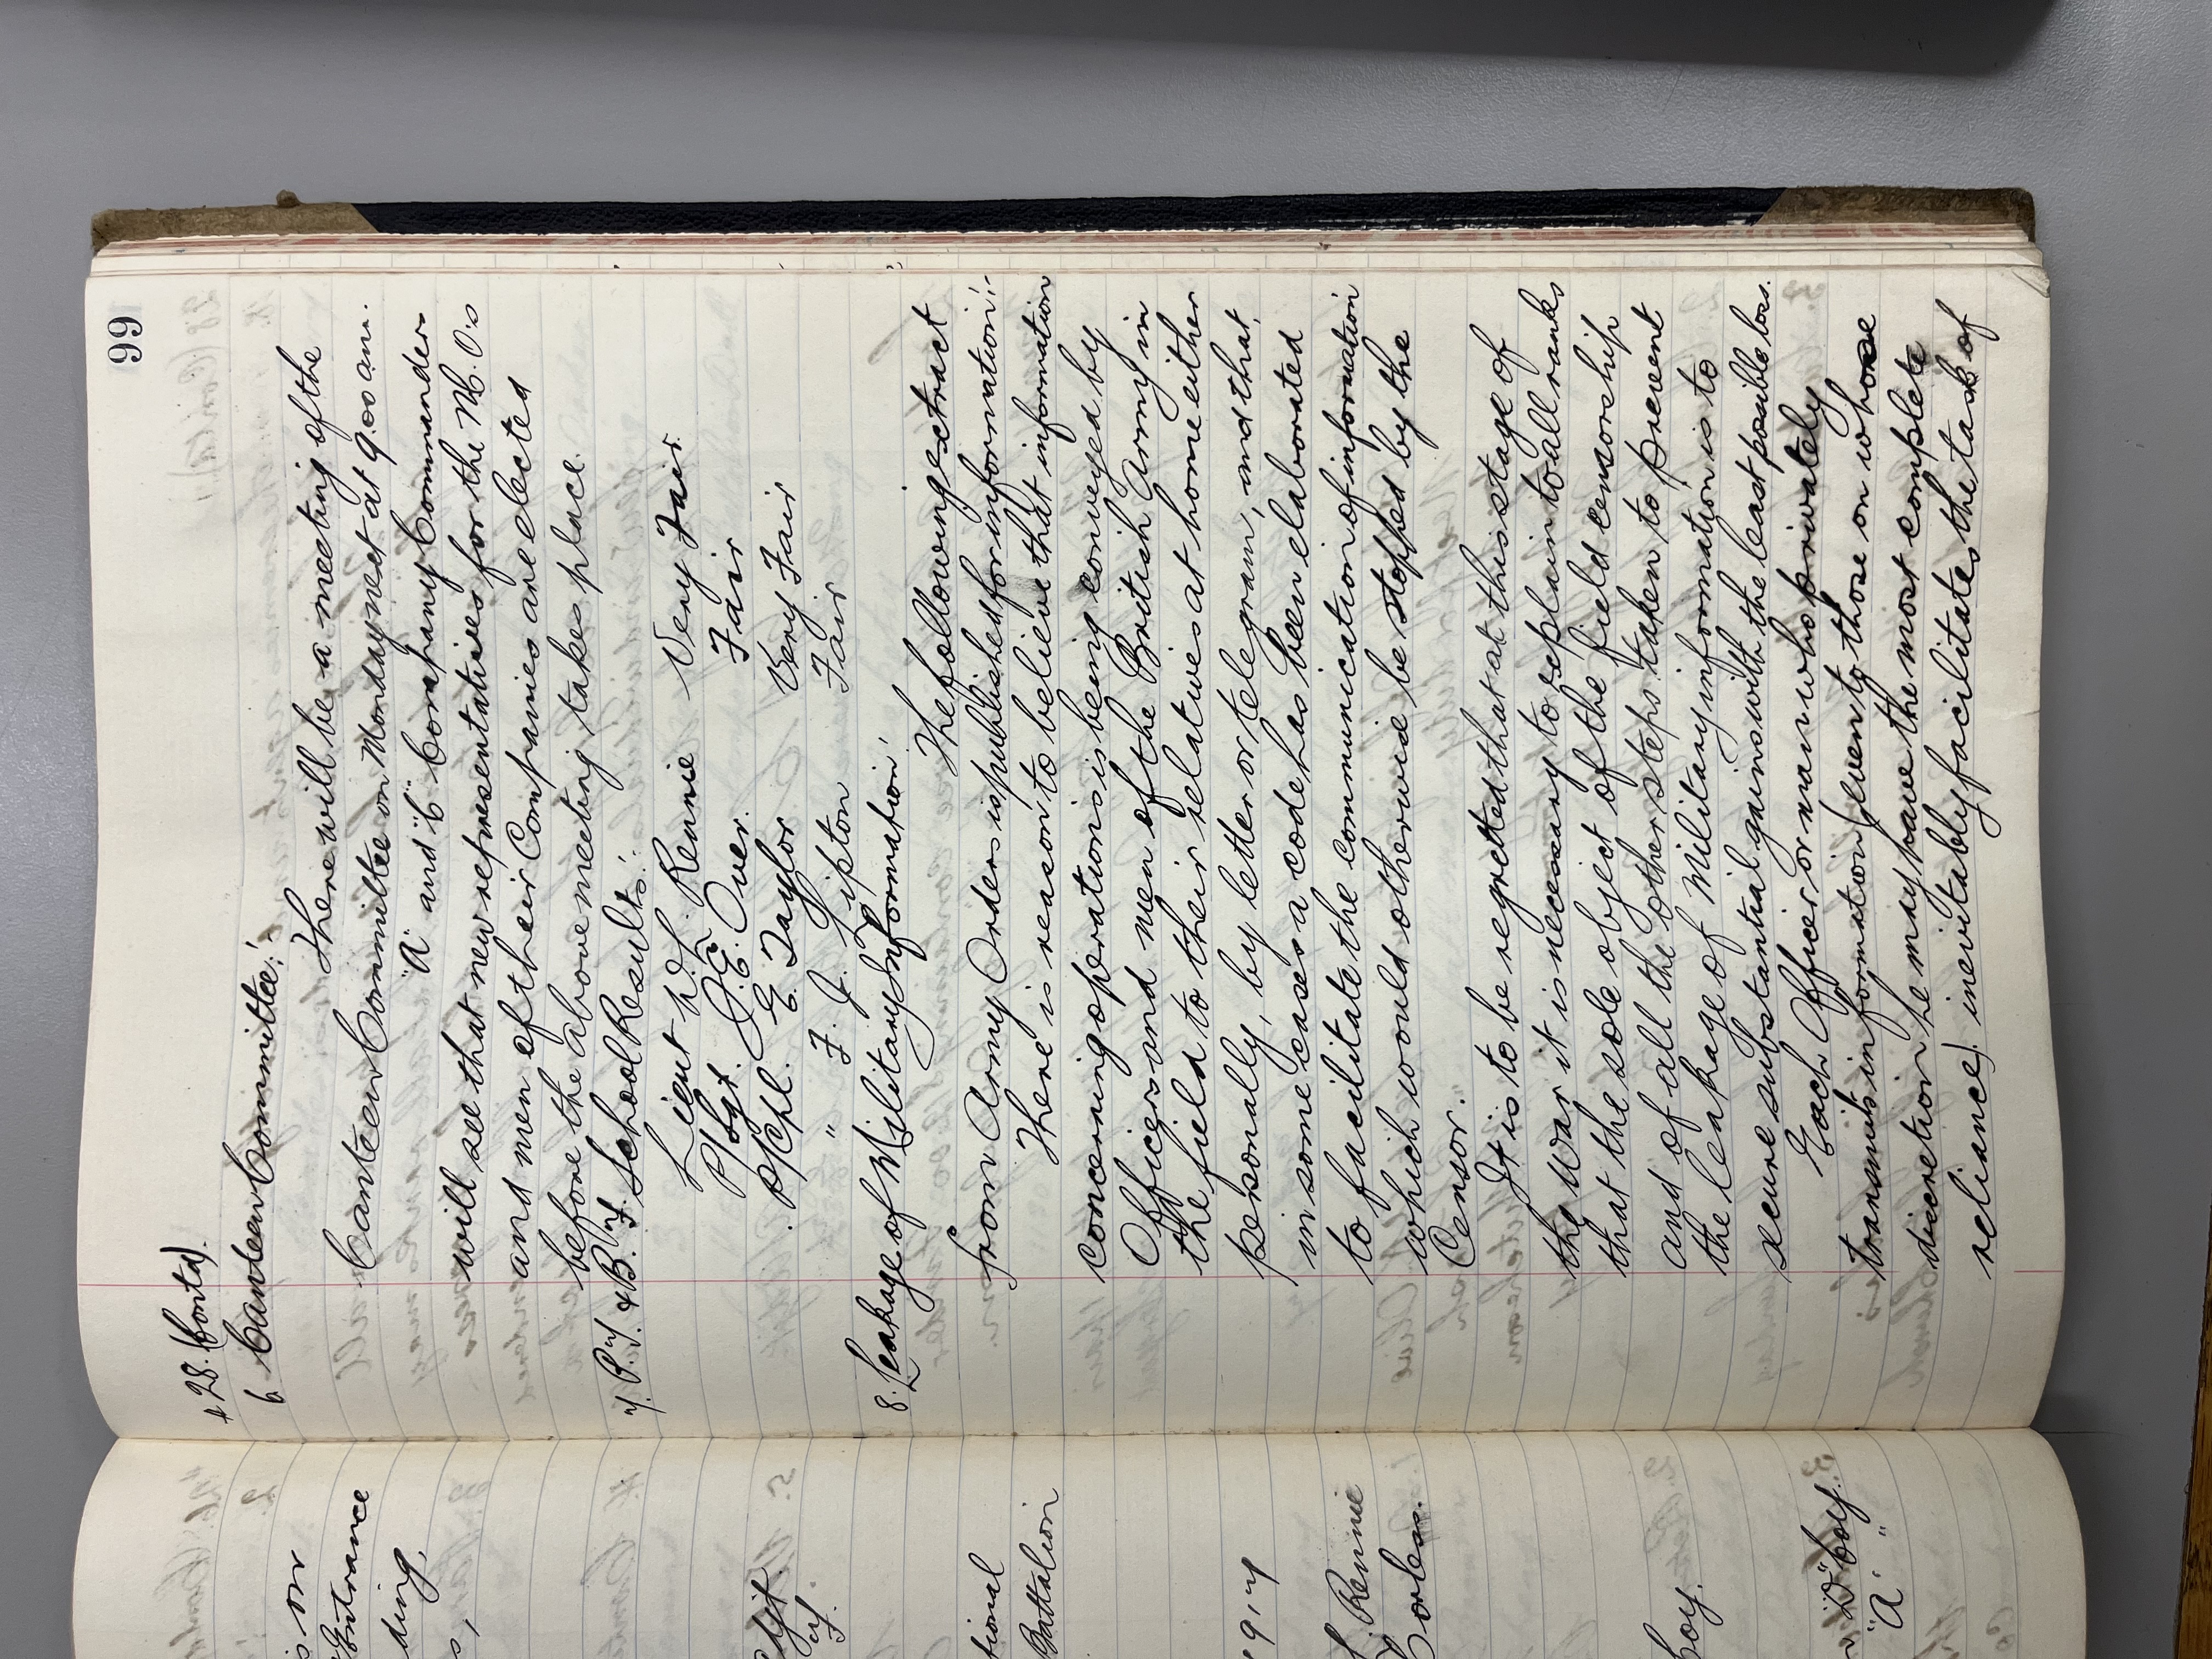 99
428. (Contd).
6. Canteen Committee:-
There will be a meeting of the
Canteen Committee on Monday next at 9.00 am.
"A" and "C" Company Commanders
will see that new representatives for the N.C.O.s
and men of their Companies are elected
before the above meeting takes place.
7. P.T. & B.F. School Results:-
Lieut P.L. Rennie Very Fair.
P/Sgt. J.E. Over. Fair
P/Cpl. E. Taylor Very Fair
" F. J. Tipton Fair
8. Leakage of Military Information:-
The following extract
from Army Orders is published for information:-
"There is reason to believe that information
concerning operations is being conveyed by
Officers and men of the British Army in
the field to their relatives at home either
personally, by letter or telegram, and that,
in some cases a code has been elaborated
to facilitate the communication of information
which would otherwise be stopped by the
Censor."
It is to be regretted that at this stage of
the War it is necessary to explain to all ranks
that the sole object of the field censorship
and of all the other steps taken to prevent
the leakage of Military information is to
secure substantial gains with the least possible loss.
Each Officer or man who privately
transmits information (even to those on whose
discretion he may have the most complete
reliance) inevitably facilitates the task of
is on
Entrance
ding,
s,
tional
Battalion
Rennie
Corless.
Coy.
"D" Coy.
"A" "